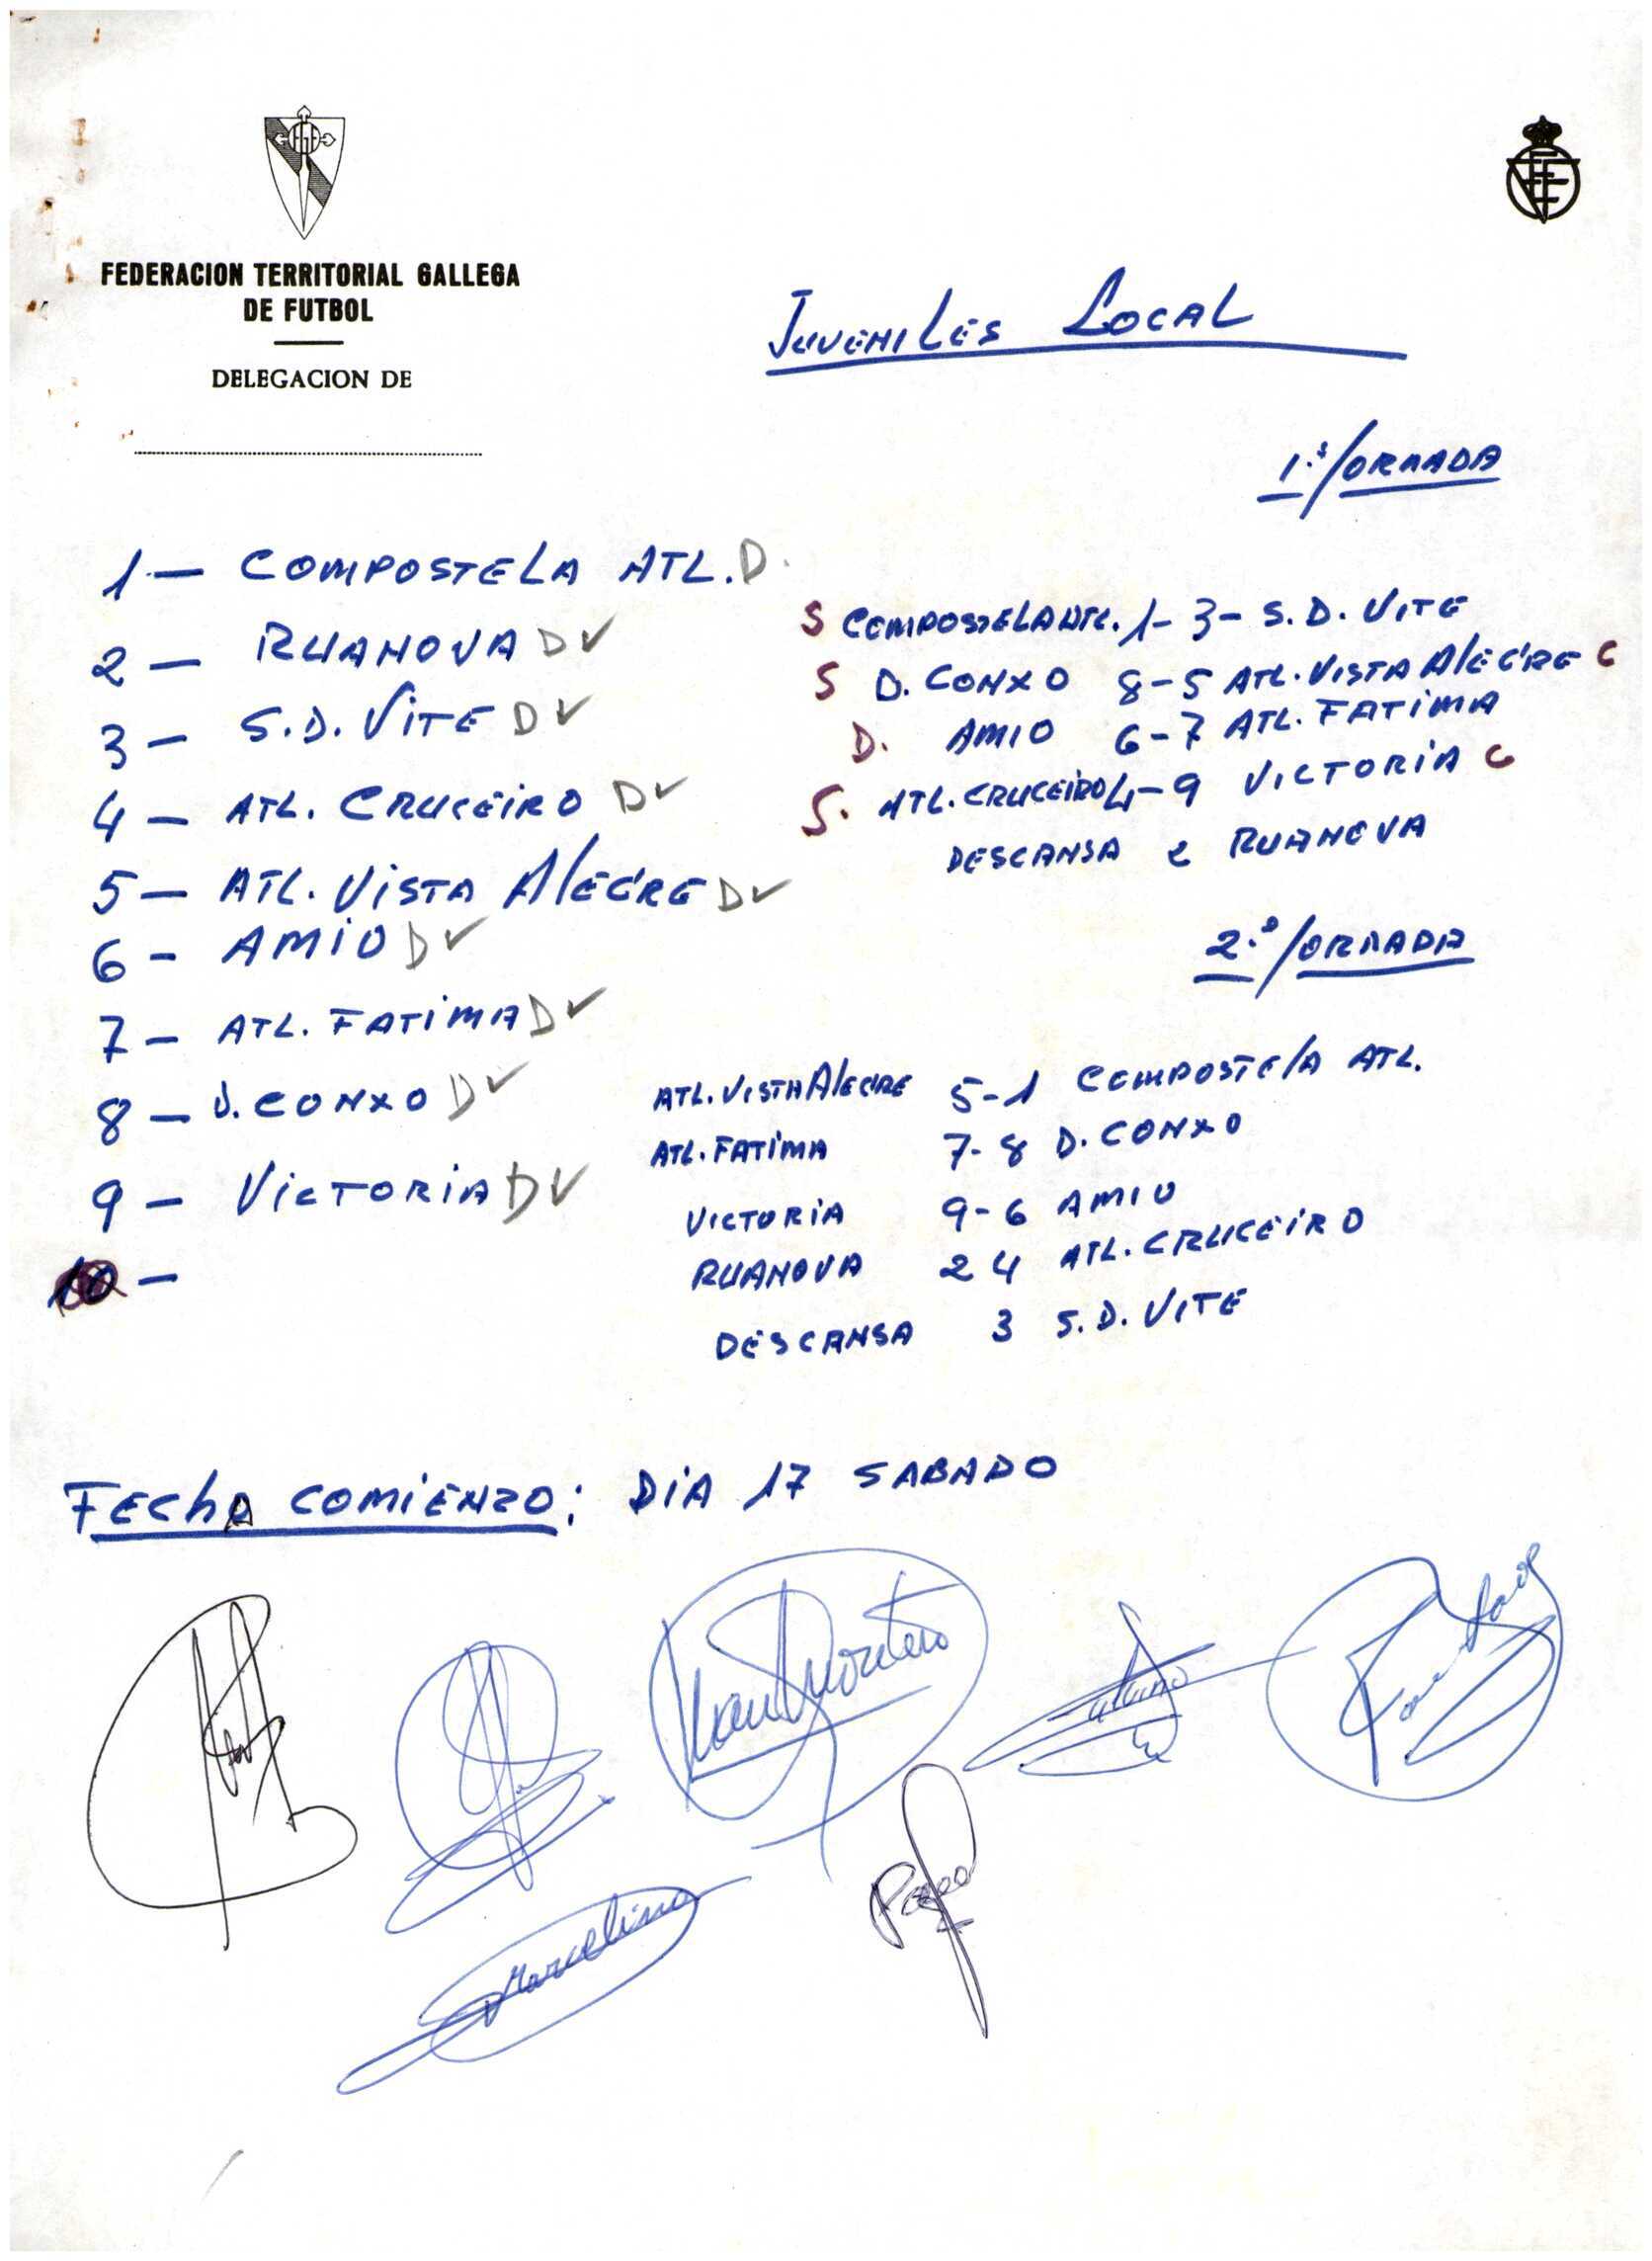 FEDERACION TERRITORIAL GALLEGA
DE FUTBOL
DELEGACION DE
JUVENILES LOCAL
1.ª JORNADA
1 — COMPOSTELA ATL. D.
2 — RUANOVA D ✓
3 — S.D. VITE D ✓
4 — ATL. CRUCEIRO D ✓
5 — ATL. VISTA ALEGRE D ✓
6 - AMIO D ✓
7 — ATL. FATIMA D ✓
8 — D. CONXO D ✓
9 — VICTORIA D ✓
10 —
S COMPOSTELA ATL. 1-3- S.D. VITE
S D. CONXO 8-5 ATL. VISTA ALEGRE C
D. AMIO 6-7 ATL. FATIMA
S. ATL. CRUCEIRO 4-9 VICTORIA C
DESCANSA 2 RUANOVA
2.ª JORNADA
ATL. VISTA ALEGRE 5-1 COMPOSTELA ATL.
ATL. FATIMA 7-8 D. CONXO
VICTORIA 9-6 AMIO
RUANOVA 2 4 ATL. CRUCEIRO
DESCANSA 3 S.D. VITE
FECHA COMIENZO: DIA 17 SABADO
Marcelino